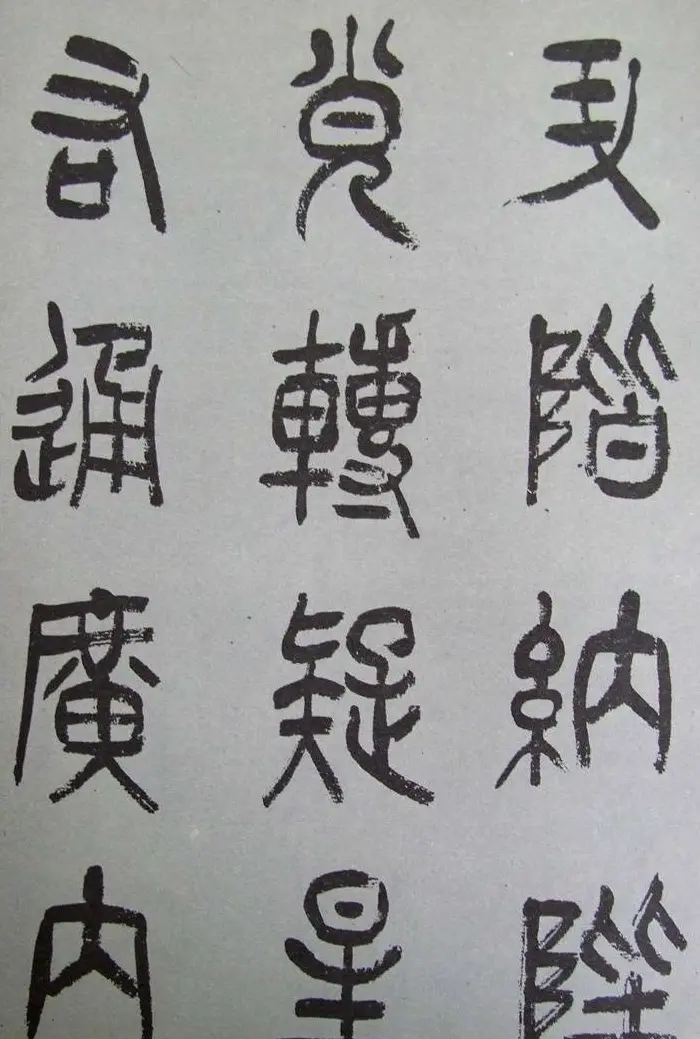 升階納陛
弁轉疑星
右通廣內